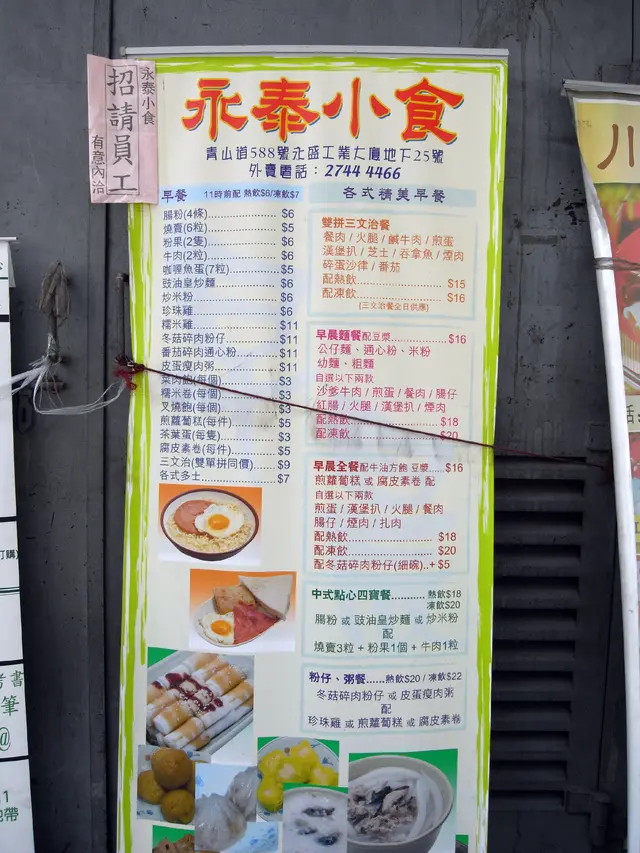 永泰小食
招請員工
有意內洽
永泰小食
青山道588號永盛工業大廈地下25號
外賣電話：2744 4466
早餐 11時前配 熱飲$6/凍飲$7
腸粉(4條)........................ $6
燒賣(6粒)........................ $5
粉果(2隻)........................ $6
牛肉(2粒)........................ $6
咖喱魚蛋(7粒)................ $5
豉油皇炒麵.................... $6
炒米粉............................ $6
珍珠雞............................ $6
糯米雞............................ $11
冬菇碎肉粉仔................ $11
番茄碎肉通心粉............ $11
皮蛋瘦肉粥.................... $11
菜肉飽(每個)................ $3
糯米卷(每個)................ $3
叉燒飽(每個)................ $3
煎蘿蔔糕(每件)............ $5
茶葉蛋(每隻)................ $3
腐皮素卷(每件)............ $5
三文治(雙單拼同價)..... $9
各式多士........................ $7
各式精美早餐
雙拼三文治餐
餐肉 / 火腿 / 鹹牛肉 / 煎蛋
漢堡扒 / 芝士 / 吞拿魚 / 煙肉
碎蛋沙律 / 番茄
配熱飲................................ $15
配凍飲................................ $16
(三文治餐全日供應)
早晨麵餐配豆漿.................... $16
公仔麵、通心粉、米粉
幼麵、粗麵
自選以下兩款
沙爹牛肉 / 煎蛋 / 餐肉 / 腸仔
紅腸 / 火腿 / 漢堡扒 / 煙肉
配熱飲................................ $18
配凍飲................................ $20
早晨全餐配牛油方飽 豆漿..... $16
煎蘿蔔糕 或 腐皮素卷 配
自選以下兩款
煎蛋 / 漢堡扒 / 火腿 / 餐肉
腸仔 / 煙肉 / 扎肉
配熱飲................................ $18
配凍飲................................ $20
配冬菇碎肉粉仔(細碗)..+ $5
中式點心四寶餐........... 熱飲$18
凍飲$20
腸粉 或 豉油皇炒麵 或 炒米粉
配
燒賣3粒 + 粉果1個 + 牛肉1粒
粉仔、粥餐......熱飲$20 / 凍飲$22
冬菇碎肉粉仔 或 皮蛋瘦肉粥
配
珍珠雞 或 煎蘿蔔糕 或 腐皮素卷
川
訂購)
考書
筆
@
1
地帶